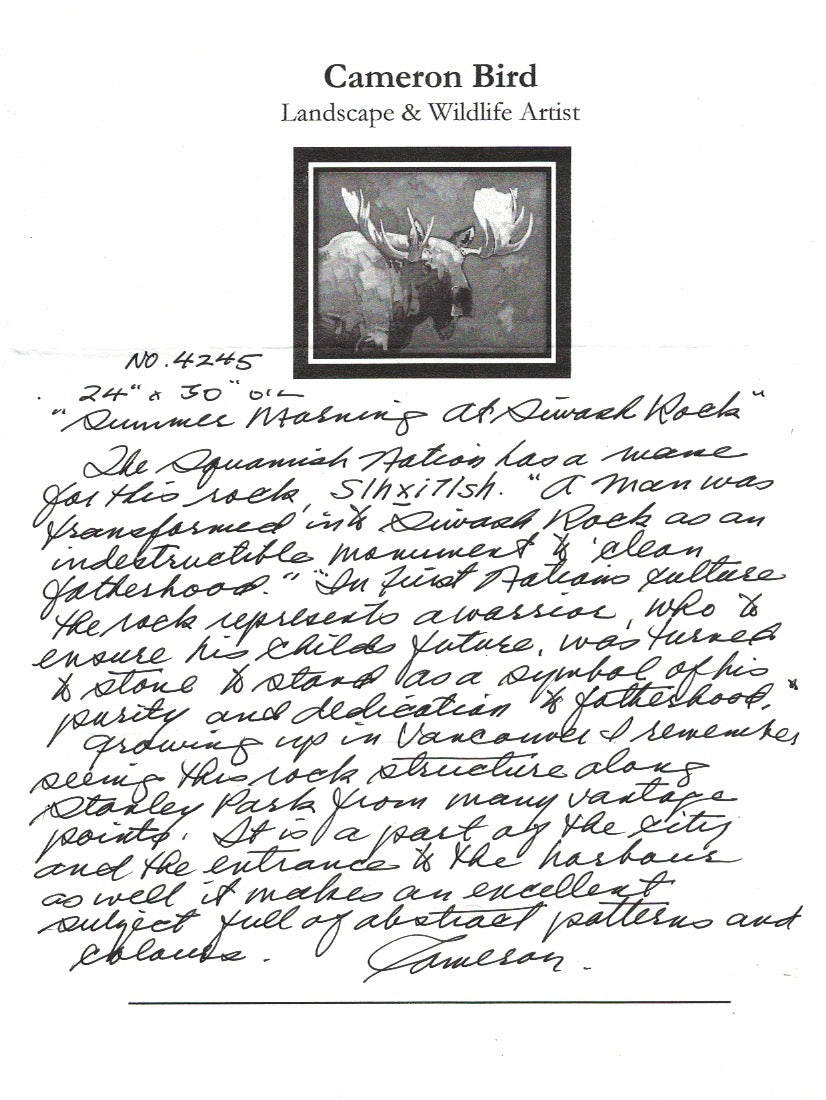 Cameron Bird
Landscape & Wildlife Artist
NO. 4245
24" x 30" OIL
"Summer Morning at Siwash Rock"
The Squamish Nation has a name
for this rock, Slhxi7lsh. "A man was
transformed into Siwash Rock as an
indestructible monument to 'clean
fatherhood." "In First Nations culture
the rock represents a warrior, who to
ensure his childs future, was turned
to stone to stand as a symbol of his
purity and dedication to fatherhood."
Growing up in Vancouver I remember
seeing this rock structure along
Stanley Park from many vantage
points. It is a part of the city
and the entrance to the harbour
as well it makes an excellent
subject full of abstract patterns and
colours.
Cameron.